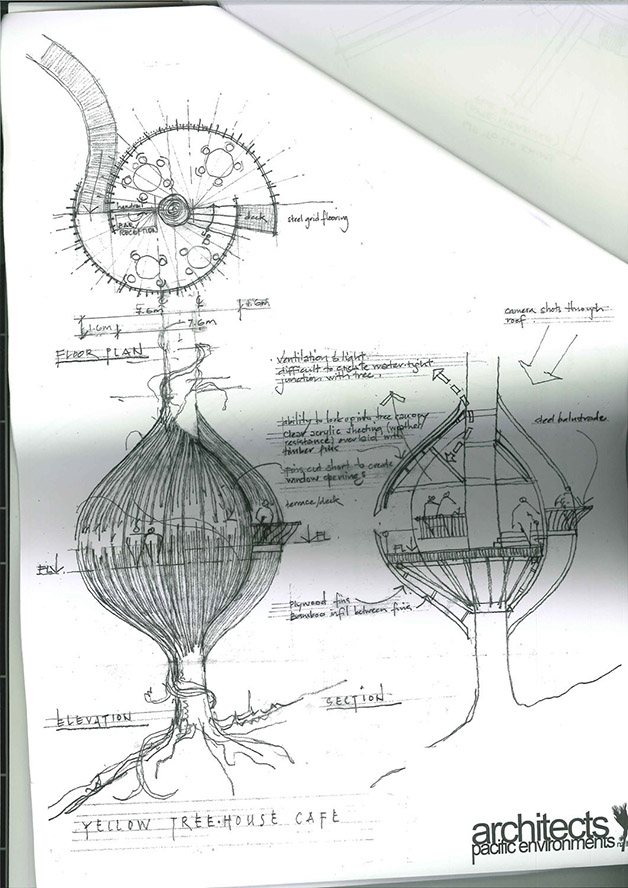 handrail
BAR/
RECEPTION
deck
steel grid flooring
7.6m
1.6m
1.6m
7.6m
FLOOR PLAN
camera shots through
roof.
Ventilation & light
difficult to create water-tight
junction with tree.
ability to look up into tree canopy
clear acrylic sheeting (weather
resistance) overlaid with
timber fins
fins cut short to create
window openings
steel balustrade
terrace/deck
FL
FL
FL
Plywood fins
Bamboo infil between fins.
ELEVATION
SECTION
YELLOW TREE-HOUSE CAFE
architects
pacific environments